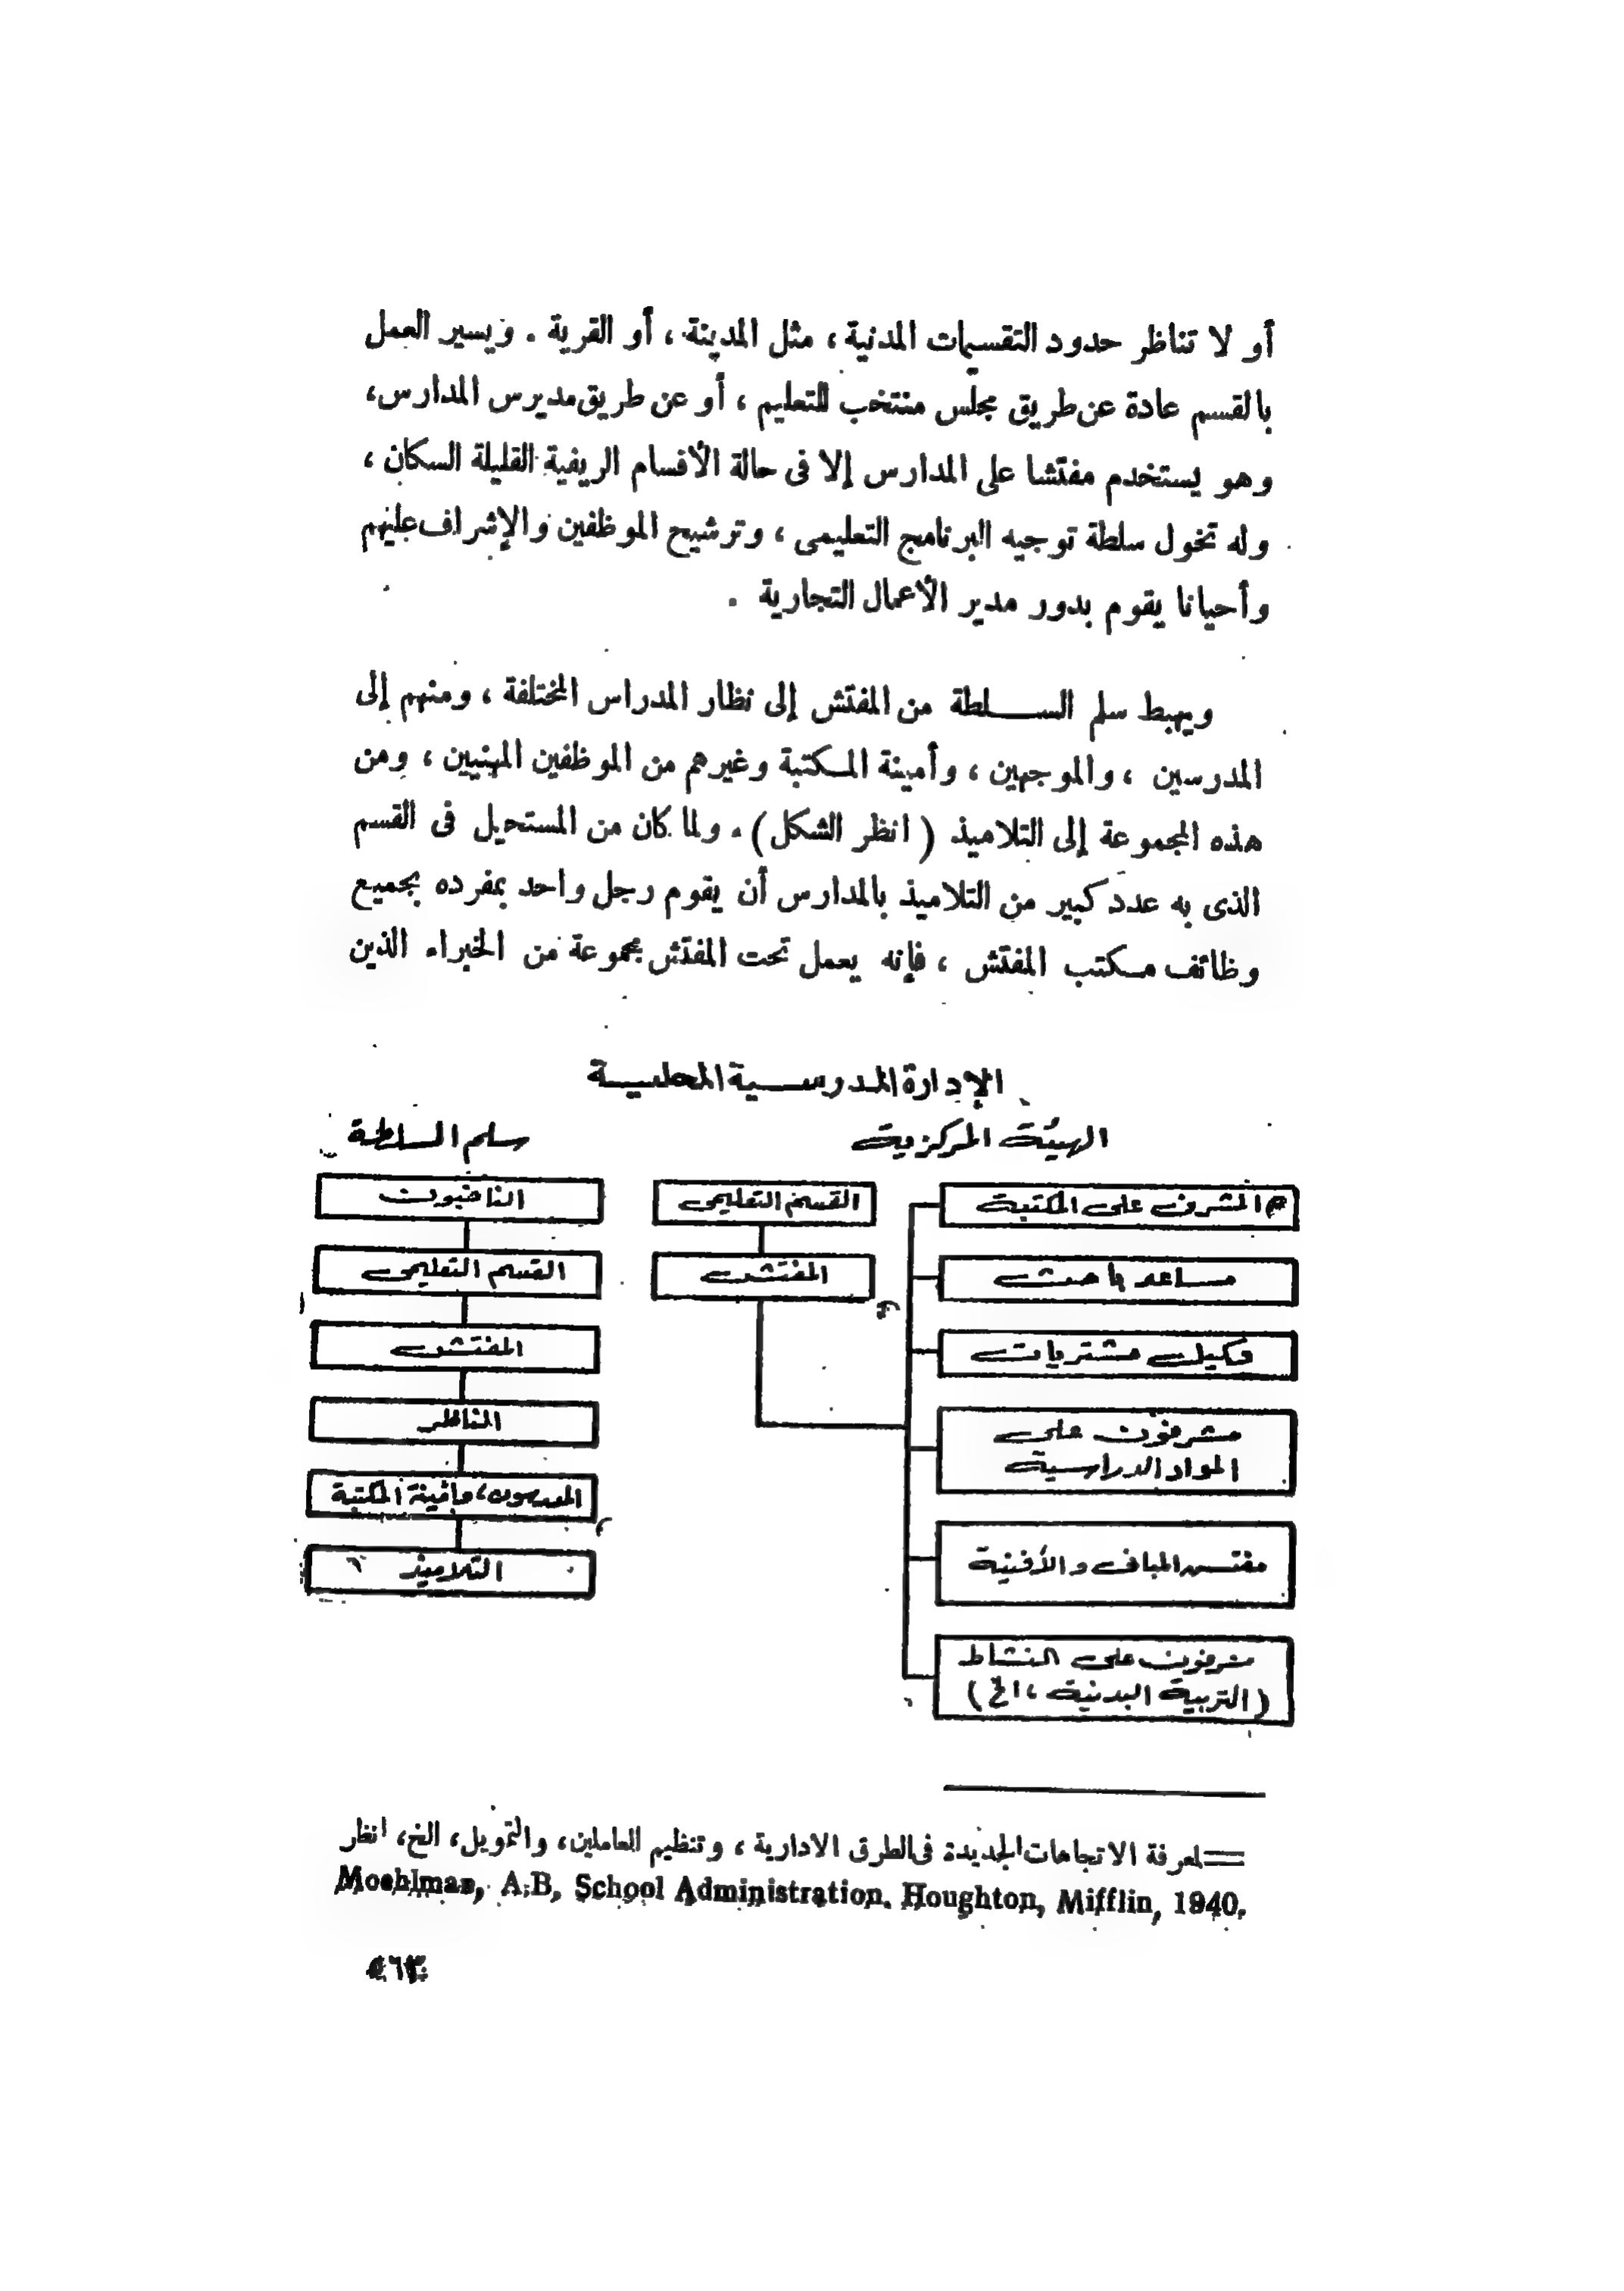 أو لا تناظر حدود التقسيمات المدنية ، مثل المدينة ، أو القرية . ويسير العمل
بالقسم عادة عن طريق مجلس منتخب للتعليم ، أو عن طريق مديرس المدارس،
وهو يستخدم مفتشا على المدارس إلا فى حالة الأقسام الريفية القليلة السكان ،
وله تخول سلطة توجيه البرنامج التعليمى ، وترشيح الموظفين والإشراف عليهم
وأحيانا يقوم بدور مدير الأعمال التجارية .
ويهبط سلم الســـلطة من المفتش إلى نظار المدراس المختلفة ، ومنهم إلى
المدرسين ، والموجهين ، وأمينة المكتبة وغيرهم من الموظفين المهنيين ، ومن
هذه المجموعة إلى التلاميذ ( انظر الشكل ) . ولما كان من المستحيل فى القسم
الذى به عدد كبير من التلاميذ بالمدارس أن يقوم رجل واحد بمفرده بجميع
وظائف مكتب المفتش ، فإنه يعمل تحت المفتش مجموعة من الخبراء الذين
الإدارة المدرســية المحليــة
الهيئة المركزية
المشرف على المكتبة
مساعد باحث
وكيل مشتريات
مشرفون على
المواد الدراسية
مفتش المبانى والأفنية
مشرفون على النشاط
( التربية البدنية ، الخ )
القسم التعليمى
المفتش
سلم السلطة
الناخبون
القسم التعليمى
المفتش
الناظر
المدرسون ، وأمينة المكتبة
التلاميذ
= لمعرفة الاتجاهات الجديدة فى الطرق الادارية ، وتنظيم العاملين، والتمويل، الخ، انظر
Moehlman, A.B, School Administration. Houghton, Mifflin, 1940.
٥٦٣